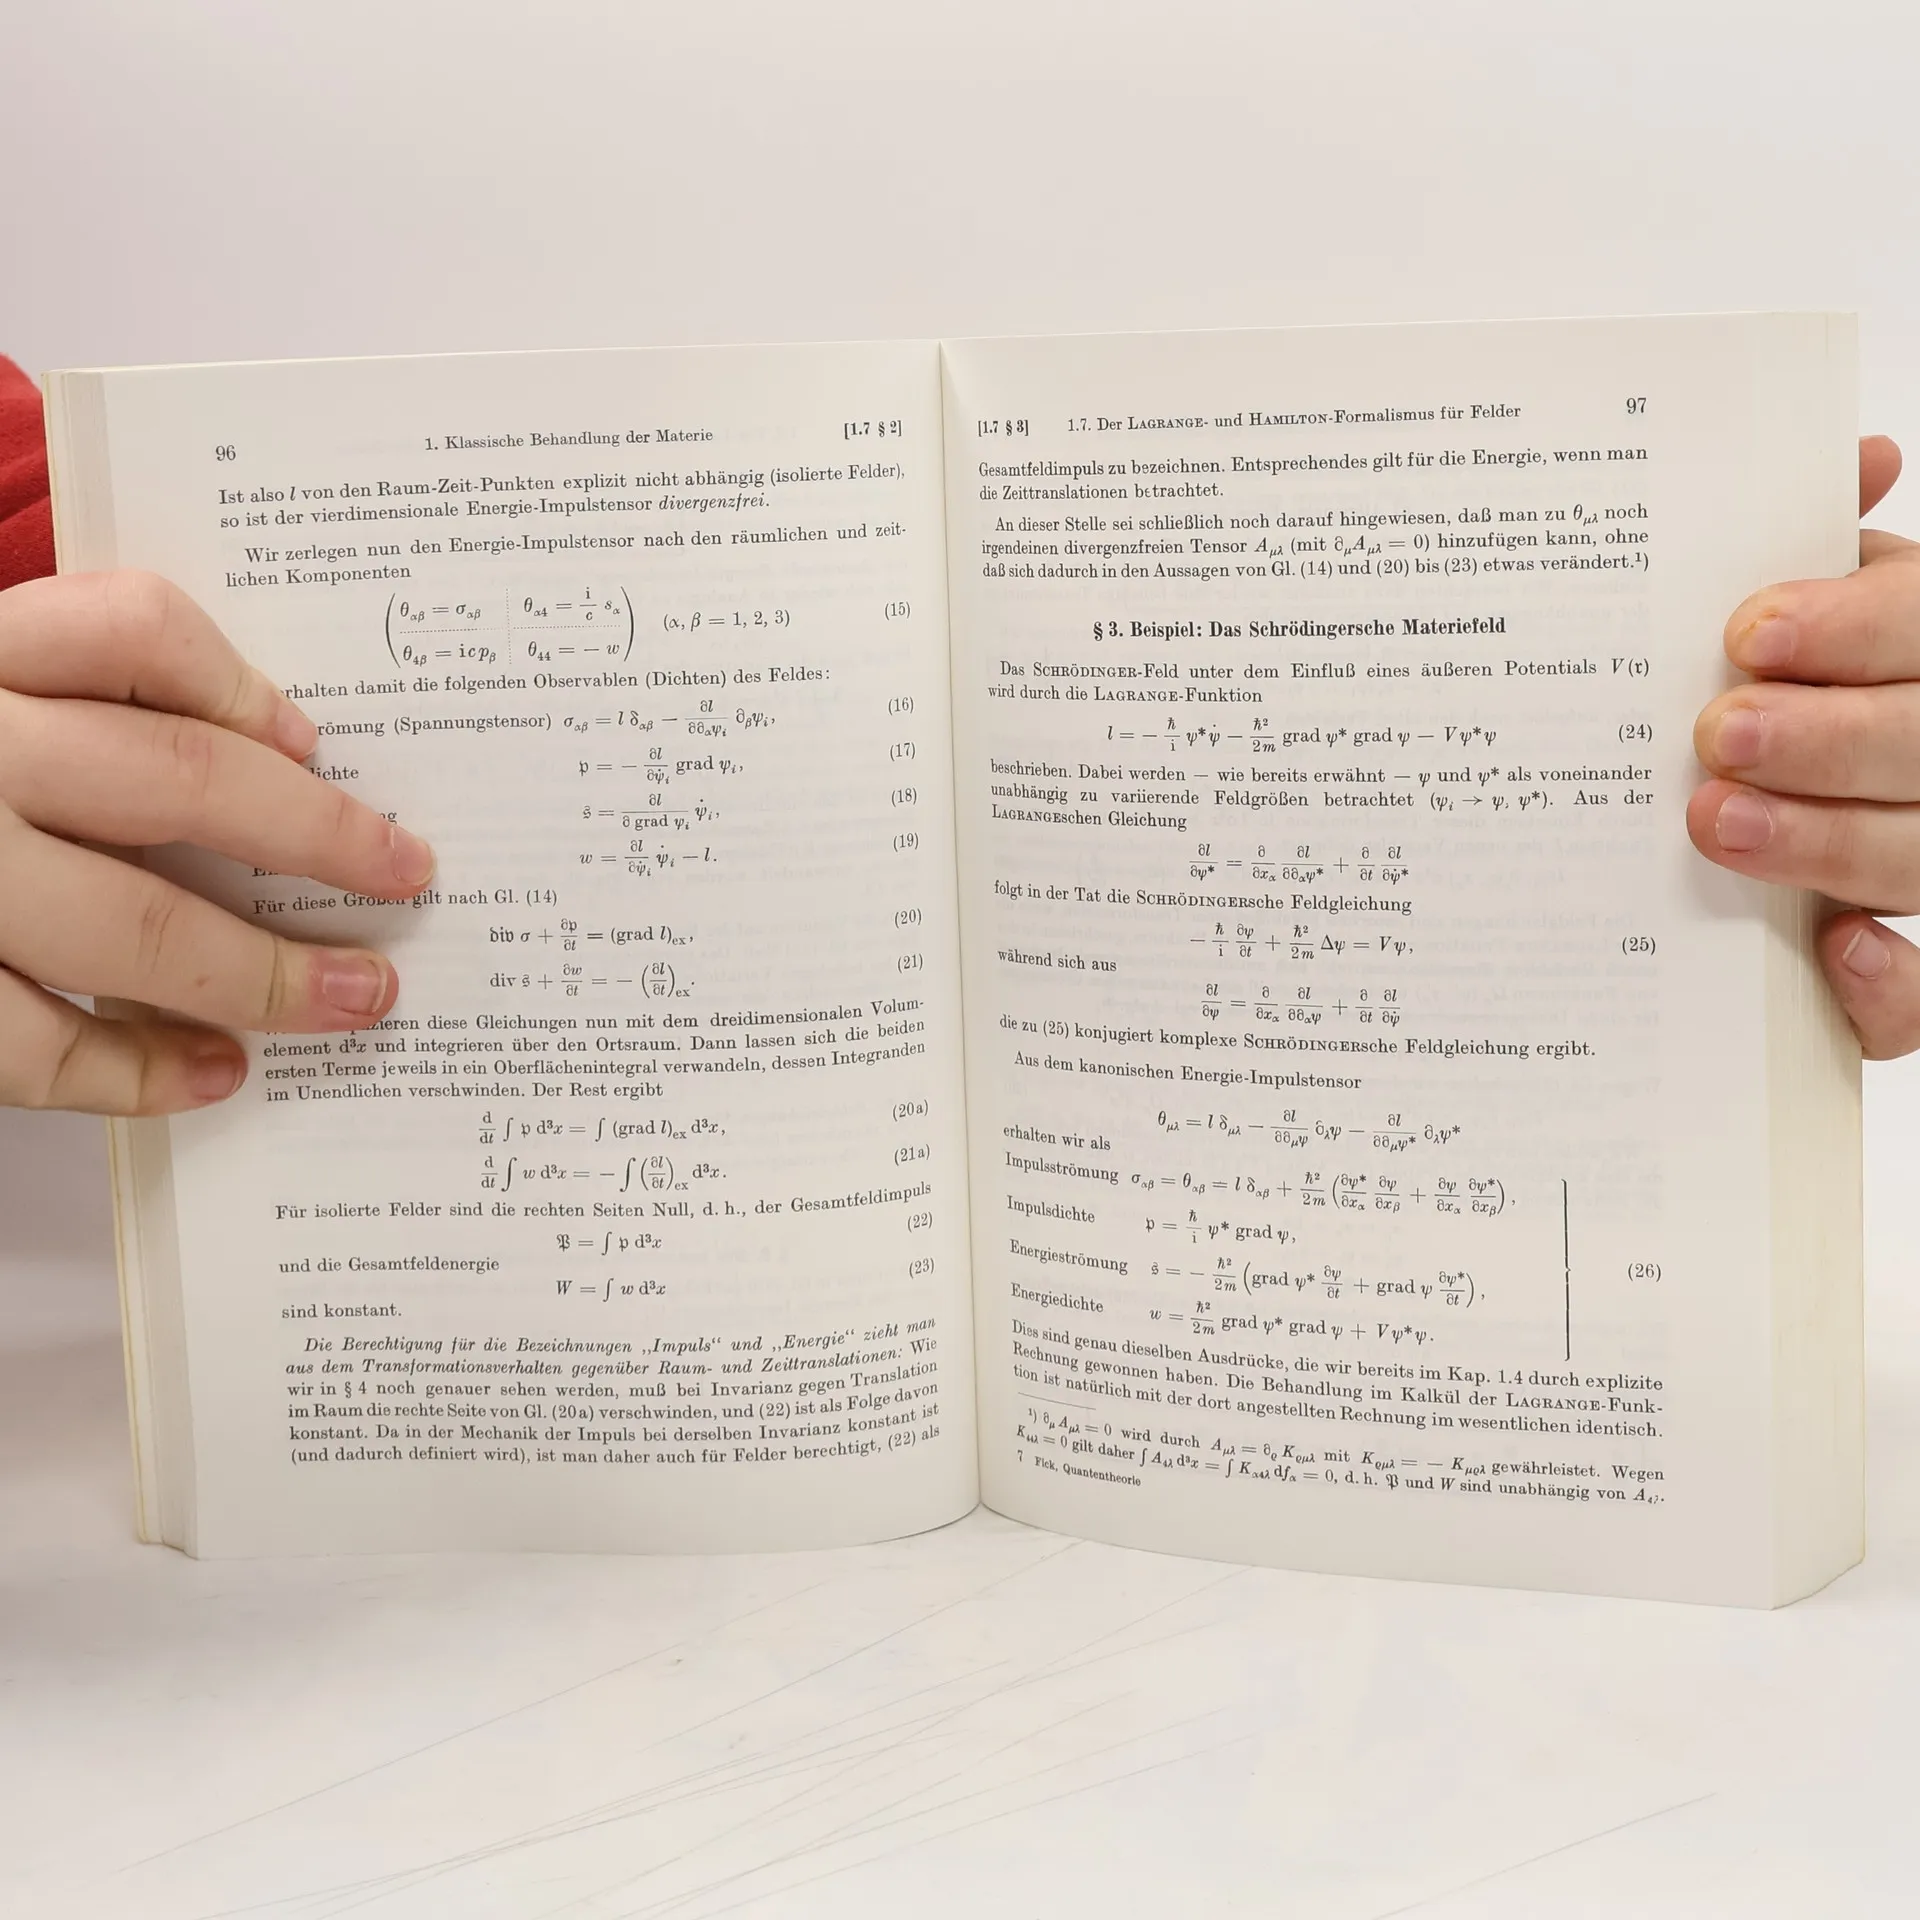 96 1. Klassische Behandlung der Materie [1.7 § 2]
Ist also l von den Raum-Zeit-Punkten explizit nicht abhängig (isolierte Felder),
so ist der vierdimensionale Energie-Impulstensor divergenzfrei.
Wir zerlegen nun den Energie-Impulstensor nach den räumlichen und zeit-
lichen Komponenten
( θ_αβ = σ_αβ θ_α4 = i/c s_α
θ_4β = i c p_β θ_44 = − w ) (α, β = 1, 2, 3) (15)
rhalten damit die folgenden Observablen (Dichten) des Feldes:
römung (Spannungstensor) σ_αβ = l δ_αβ − ∂l/∂∂_αψ_i ∂_βψ_i, (16)
lichte 𝔭 = − ∂l/∂ψ̇_i grad ψ_i, (17)
ng 𝔰 = ∂l/∂ grad ψ_i ψ̇_i, (18)
w = ∂l/∂ψ̇_i ψ̇_i − l. (19)
Für diese Größen gilt nach Gl. (14)
𝔡𝔦𝔳 σ + ∂𝔭/∂t = (grad l)_ex, (20)
div 𝔰 + ∂w/∂t = − (∂l/∂t)_ex. (21)
zieren diese Gleichungen nun mit dem dreidimensionalen Volum-
element d³x und integrieren über den Ortsraum. Dann lassen sich die beiden
ersten Terme jeweils in ein Oberflächenintegral verwandeln, dessen Integranden
im Unendlichen verschwinden. Der Rest ergibt
d/dt ∫ 𝔭 d³x = ∫ (grad l)_ex d³x, (20a)
d/dt ∫ w d³x = − ∫ (∂l/∂t)_ex d³x. (21a)
Für isolierte Felder sind die rechten Seiten Null, d. h., der Gesamtfeldimpuls
𝔓 = ∫ 𝔭 d³x (22)
und die Gesamtfeldenergie
W = ∫ w d³x (23)
sind konstant.
Die Berechtigung für die Bezeichnungen „Impuls“ und „Energie“ zieht man
aus dem Transformationsverhalten gegenüber Raum- und Zeittranslationen: Wie
wir in § 4 noch genauer sehen werden, muß bei Invarianz gegen Translation
im Raum die rechte Seite von Gl. (20a) verschwinden, und (22) ist als Folge davon
konstant. Da in der Mechanik der Impuls bei derselben Invarianz konstant ist
(und dadurch definiert wird), ist man daher auch für Felder berechtigt, (22) als
[1.7 § 3] 1.7. Der LAGRANGE- und HAMILTON-Formalismus für Felder 97
Gesamtfeldimpuls zu bezeichnen. Entsprechendes gilt für die Energie, wenn man
die Zeittranslationen betrachtet.
An dieser Stelle sei schließlich noch darauf hingewiesen, daß man zu θ_μλ noch
irgendeinen divergenzfreien Tensor A_μλ (mit ∂_μA_μλ = 0) hinzufügen kann, ohne
daß sich dadurch in den Aussagen von Gl. (14) und (20) bis (23) etwas verändert.¹)
§ 3. Beispiel: Das Schrödingersche Materiefeld
Das SCHRÖDINGER-Feld unter dem Einfluß eines äußeren Potentials V(𝔯)
wird durch die LAGRANGE-Funktion
l = − ℏ/i ψ*ψ̇ − ℏ²/2m grad ψ* grad ψ − Vψ*ψ (24)
beschrieben. Dabei werden — wie bereits erwähnt — ψ und ψ* als voneinander
unabhängig zu variierende Feldgrößen betrachtet (ψ_i → ψ, ψ*). Aus der
LAGRANGEschen Gleichung
∂l/∂ψ* = ∂/∂x_α ∂l/∂∂_αψ* + ∂/∂t ∂l/∂ψ̇*
folgt in der Tat die SCHRÖDINGERsche Feldgleichung
− ℏ/i ∂ψ/∂t + ℏ²/2m Δψ = Vψ, (25)
während sich aus
∂l/∂ψ = ∂/∂x_α ∂l/∂∂_αψ + ∂/∂t ∂l/∂ψ̇
die zu (25) konjugiert komplexe SCHRÖDINGERsche Feldgleichung ergibt.
Aus dem kanonischen Energie-Impulstensor
θ_μλ = l δ_μλ − ∂l/∂∂_μψ ∂_λψ − ∂l/∂∂_μψ* ∂_λψ*
erhalten wir als
Impulsströmung σ_αβ = θ_αβ = l δ_αβ + ℏ²/2m (∂ψ*/∂x_α ∂ψ/∂x_β + ∂ψ/∂x_α ∂ψ*/∂x_β),
Impulsdichte 𝔭 = ℏ/i ψ* grad ψ,
Energieströmung 𝔰 = − ℏ²/2m (grad ψ* ∂ψ/∂t + grad ψ ∂ψ*/∂t), (26)
Energiedichte w = ℏ²/2m grad ψ* grad ψ + Vψ*ψ.
Dies sind genau dieselben Ausdrücke, die wir bereits im Kap. 1.4 durch explizite
Rechnung gewonnen haben. Die Behandlung im Kalkül der LAGRANGE-Funk-
tion ist natürlich mit der dort angestellten Rechnung im wesentlichen identisch.
¹) ∂_μ A_μλ = 0 wird durch A_μλ = ∂_ϱ K_ϱμλ mit K_ϱμλ = − K_μϱλ gewährleistet. Wegen
K_44λ = 0 gilt daher ∫ A_4λ d³x = ∫ K_α4λ df_α = 0, d. h. 𝔓 und W sind unabhängig von A_4λ.
7 Fick, Quantentheorie